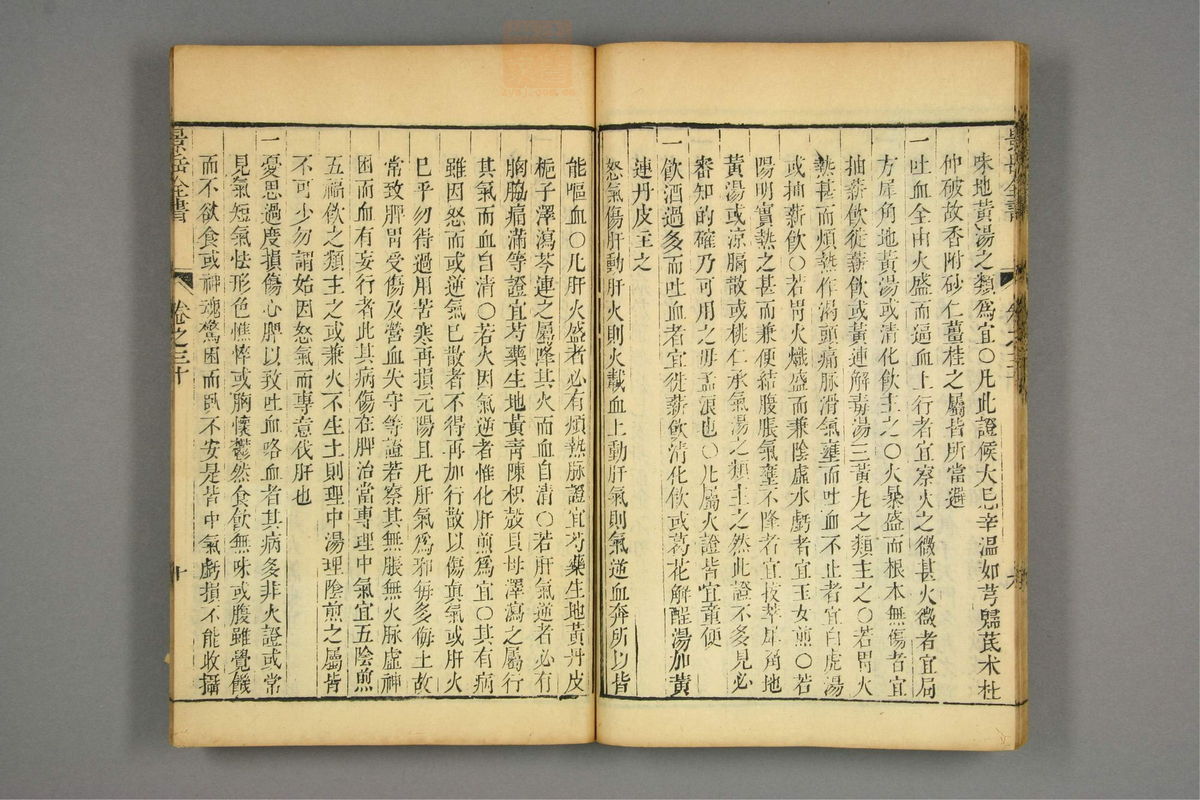 景岳全書
卷之三十
九
味地黃湯之類爲宜〇凡此證候大忌辛温如芎歸芪术杜
仲破故香附砂仁薑桂之屬皆所當避
一吐血全由火盛而逼血上行者宜察火之微甚火微者宜局
方犀角地黃湯或清化飲主之〇火暴盛而根本無傷者宜
抽薪飲徙薪飲或黃連解毒湯三黃丸之類主之〇若胃火
熱甚而煩熱作渴頭痛脉滑氣壅而吐血不止者宜白虎湯
或抽薪飲〇若胃火熾盛而兼陰虛水虧者宜玉女煎〇若
陽明實熱之甚而兼便結腹脹氣壅不降者宜拔萃犀角地
黃湯或凉膈散或桃仁承氣湯之類主之然此證不多見必
審知的確乃可用之毋孟浪也〇凡屬火證皆宜童便
一飲酒過多而吐血者宜徙薪飲清化飲或葛花解酲湯加黃
連丹皮主之
一怒氣傷肝動肝火則火載血上動肝氣則氣逆血奔所以皆
能嘔血〇凡肝火盛者必有煩熱脉證宜芍藥生地黃丹皮
梔子澤瀉芩連之屬降其火而血自清〇若肝氣逆者必有
胸脇痛滿等證宜芍藥生地黃青陳枳殼貝母澤瀉之屬行
其氣而血自清〇若火因氣逆者惟化肝煎爲宜〇其有病
雖因怒而或逆氣已散者不得再加行散以傷眞氣或肝火
已平勿得過用苦寒再損元陽且凡肝氣爲邪每多侮土故
常致脾胃受傷及營血失守等證若察其無脹無火脉虛神
困而血有妄行者此其病傷在脾治當專理中氣宜五陰煎
五福飲之類主之或兼火不生土則理中湯理陰煎之屬皆
不可少勿謂始因怒氣而專意伐肝也
一憂思過度損傷心脾以致吐血咯血者其病多非火證或常
見氣短氣怯形色憔悴或胸懷鬱然食飲無味或腹雖覺饑
而不欲食或神魂驚困而臥不安是皆中氣虧損不能收攝
景岳全書
卷之三十
十